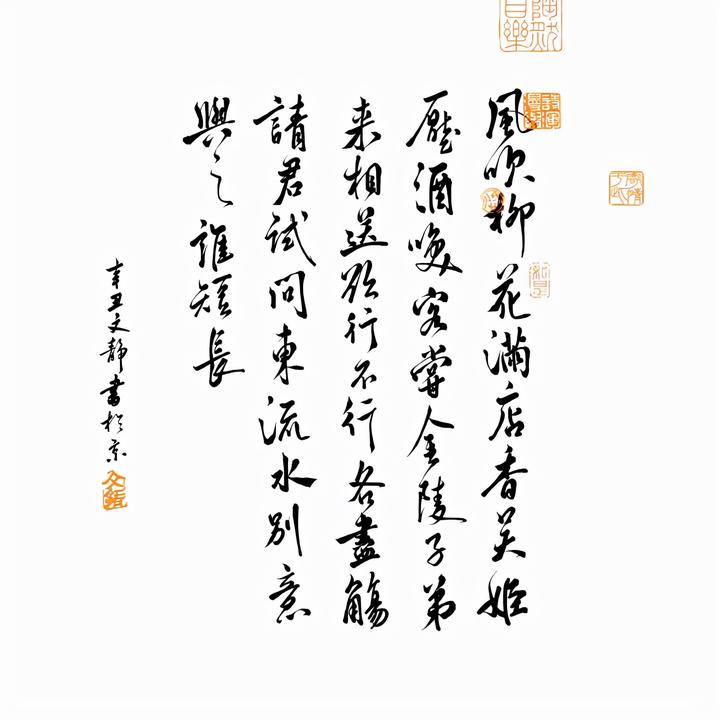 風吹柳花滿店香吴姬
壓酒喚客嘗金陵子弟
来相送欲行不行各盡觴
請君試問東流水別意
與之誰短長
辛丑文靜書於京